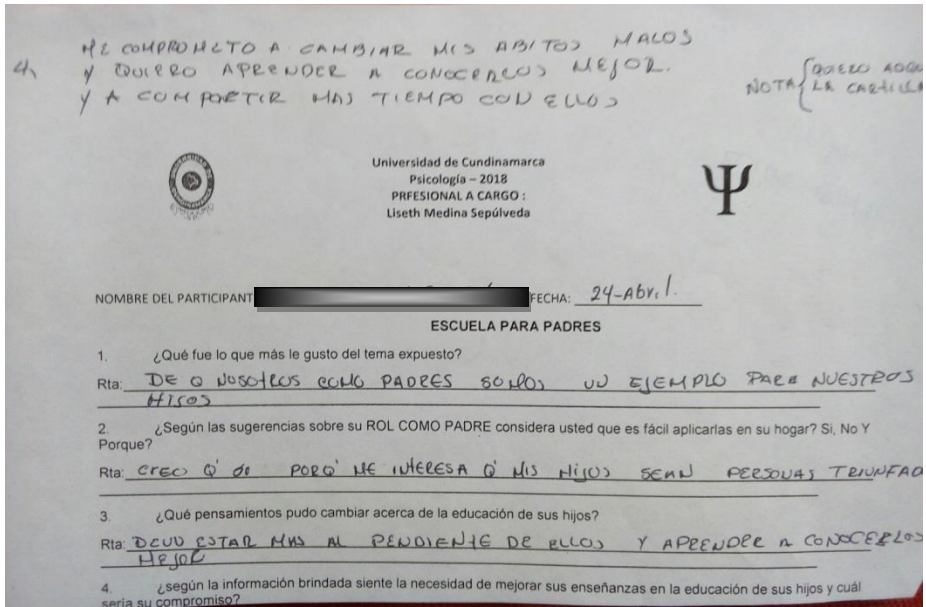 ME COMPROMETO A CAMBIAR MIS ABITOS MALOS
4, Y QUIERO APRENDER A CONOCERLOS MEJOR.
Y A COMPARTIR MAS TIEMPO CON ELLOS
NOTA { QUIERO
LA CARTILLA
Universidad de Cundinamarca
Psicología – 2018
PRFESIONAL A CARGO :
Liseth Medina Sepúlveda
Ψ
NOMBRE DEL PARTICIPANT FECHA: 24-Abril.
ESCUELA PARA PADRES
1. ¿Qué fue lo que más le gusto del tema expuesto?
Rta: DE Q NOSOTROS COMO PADRES SOMOS UN EJEMPLO PARA NUESTROS
HIJOS
2. ¿Según las sugerencias sobre su ROL COMO PADRE considera usted que es fácil aplicarlas en su hogar? Si, No Y
Porque?
Rta: CREO Q' PORQ' ME INTERESA Q' MIS HIJOS SEAN PERSONAS TRIUNFAD
3. ¿Qué pensamientos pudo cambiar acerca de la educación de sus hijos?
Rta: ESTAR MAS AL PENDIENTE DE ELLOS Y APRENDER A CONOCERLOS
MEJOR
4. ¿según la información brindada siente la necesidad de mejorar sus enseñanzas en la educación de sus hijos y cuál
seria su compromiso?